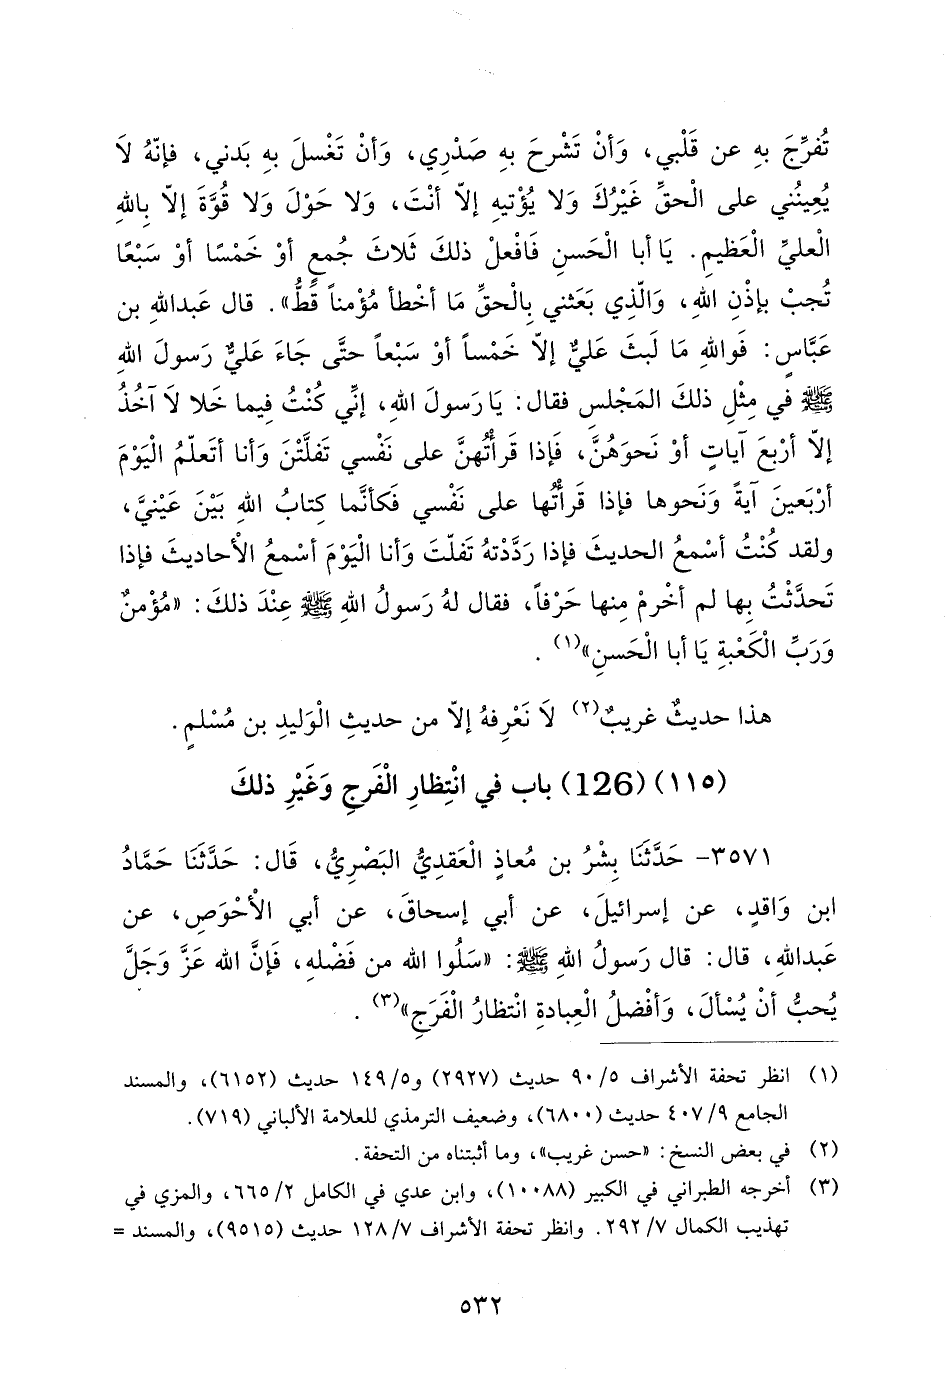 تُفرِّجَ بِهِ عن قَلْبي، وَأنْ تَشْرحَ بِهِ صَدْرِي، وَأنْ تَغْسلَ بِهِ بَدني، فإنّهُ لَا
يُعِينُني على الْحقِّ غَيْرُكَ وَلا يُؤْتيهِ إلاّ أنْتَ، وَلا حَوْلَ وَلا قُوَّةَ إلاّ بِاللهِ
الْعليِّ الْعَظيمِ. يَا أبا الْحَسنِ فَافْعلْ ذلكَ ثَلاثَ جُمعٍ أوْ خَمْسًا أوْ سَبْعًا
تُجبْ بإذْنِ اللهِ، وَالّذِي بَعَثني بِالْحقِّ مَا أخْطأ مُؤْمناً قَطُّ». قال عَبدالله بن
عَبَّاسٍ: فَوالله مَا لَبثَ عَليٌّ إلاّ خَمْساً أوْ سَبْعاً حتَّى جَاءَ عَليٌّ رَسولَ الله
ﷺ في مِثْلِ ذلكَ المَجْلسِ فقال: يَا رَسولَ الله، إنِّي كُنْتُ فِيما خَلا لاَ آخُذُ
إلاّ أرْبعَ آياتٍ أوْ نَحوَهُنَّ، فَإذا قَرأْتُهنَّ على نَفْسي تَفلَّتْنَ وَأنا أتَعلّمُ الْيَوْمَ
أرْبَعينَ آيةً وَنَحوها فإذا قَرأْتُها على نَفْسي فَكأنَّما كِتابُ اللهِ بَيْنَ عَيْنيَّ،
ولقد كُنْتُ أسْمعُ الحديثَ فإذا رَدَّدْتهُ تَفلّتَ وَأنا الْيَوْمَ أسْمعُ الْأحاديثَ فإذا
تَحدَّثْتُ بِها لم أخْرِمْ مِنها حَرْفاً، فقال لهُ رَسولُ اللهِ ﷺ عِنْدَ ذلكَ: «مُؤْمنٌ
وَرَبِّ الْكَعْبةِ يَا أبا الْحَسنِ»(١).
هذا حديثٌ غريبٌ(٢) لَا نَعْرِفهُ إلاّ من حديثِ الْوَليدِ بن مُسْلمٍ.
(١١٥) (126) باب في انْتِظارِ الْفَرجِ وَغَيْرِ ذلكَ
٣٥٧١- حَدَّثَنَا بِشْرُ بن مُعاذٍ الْعَقديُّ البَصْرِيُّ، قَال: حَدَّثَنَا حَمَّادُ
ابن وَاقدٍ، عن إسرائيلَ، عن أبي إسحاقَ، عن أبي الأحْوَصِ، عن
عَبدالله، قال: قال رَسولُ اللهِ ﷺ: «سَلُوا الله من فَضْلهِ، فَإنَّ الله عَزَّ وَجَلَّ
يُحبُّ أنْ يُسْألَ، وَأفْضلُ الْعِبادةِ انْتظارُ الْفَرَجِ»(٣).
(١) انظر تحفة الأشراف ٥/ ٩٠ حديث (٢٩٢٧) و٥/ ١٤٩ حديث (٦١٥٢)، والمسند
الجامع ٩/ ٤٠٧ حديث (٦٨٠٠)، وضعيف الترمذي للعلامة الألباني (٧١٩).
(٢) في بعض النسخ: «حسن غريب»، وما أثبتناه من التحفة.
(٣) أخرجه الطبراني في الكبير (١٠٠٨٨)، وابن عدي في الكامل ٢/ ٦٦٥، والمزي في
تهذيب الكمال ٧/ ٢٩٢. وانظر تحفة الأشراف ٧/ ١٢٨ حديث (٩٥١٥)، والمسند =
٥٣٢